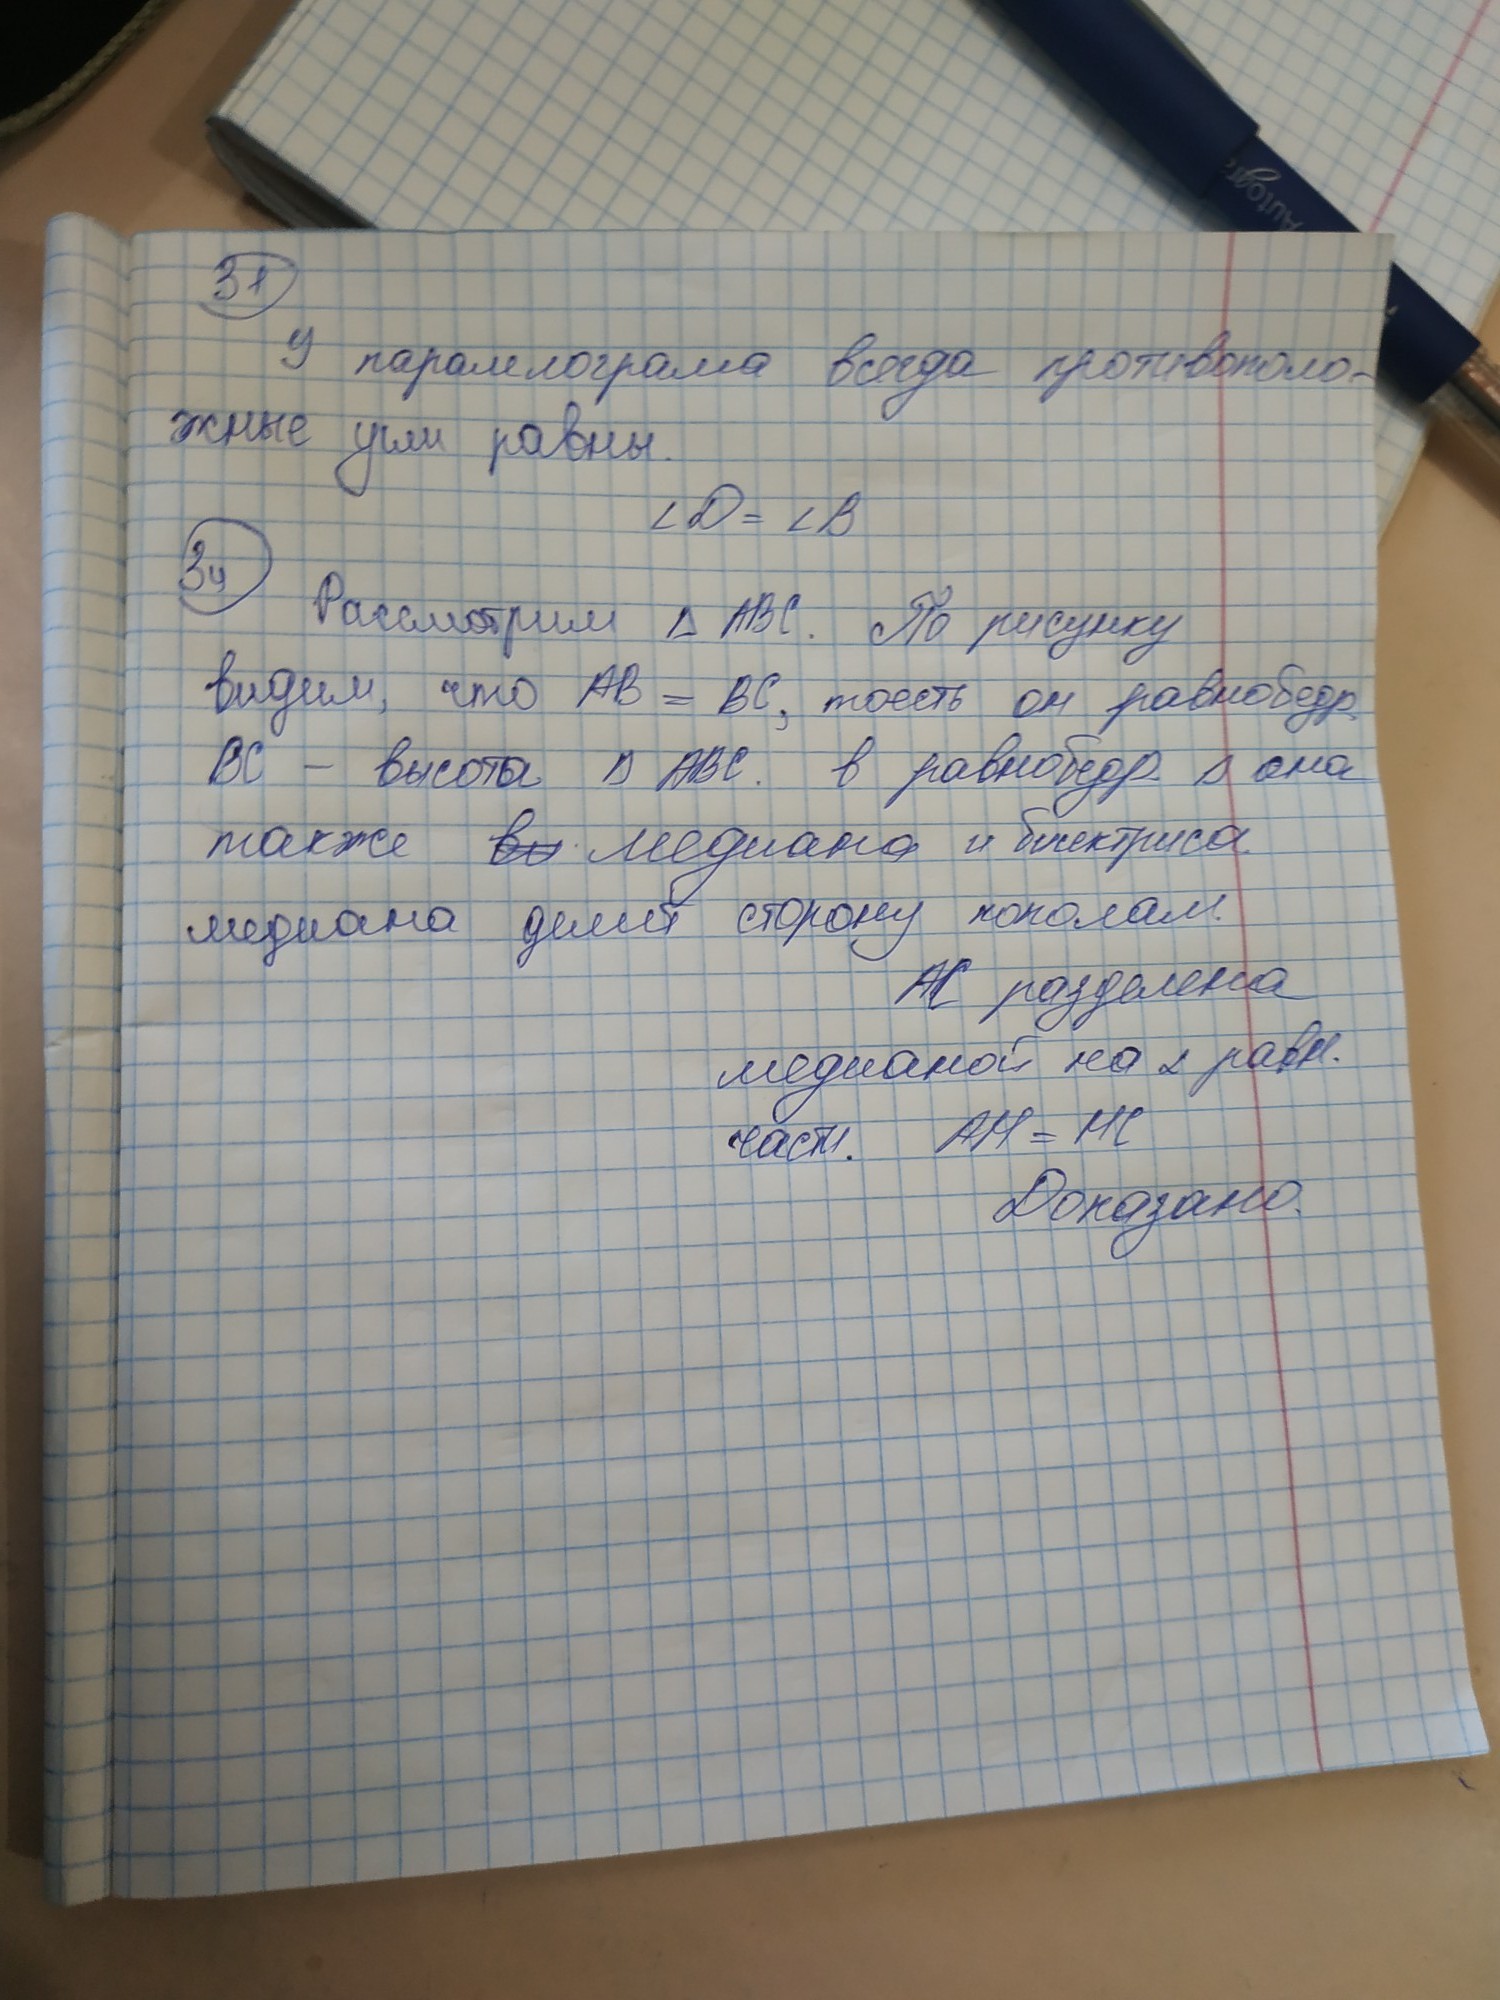 Autogr
31
У паралелограма всегда противополо-
жные углы равны.
∠D = ∠B
34
Рассмотрим △ ABC. По рисунку
видим, что AB = BC, тоесть он равнобедр.
BC – высота △ ABC. в равнобедр △ она
также медиана и биектриса.
медиана делит сторону пополам.
AC разделена
медианой на 2 равн.
части. AH = HC
Доказано.